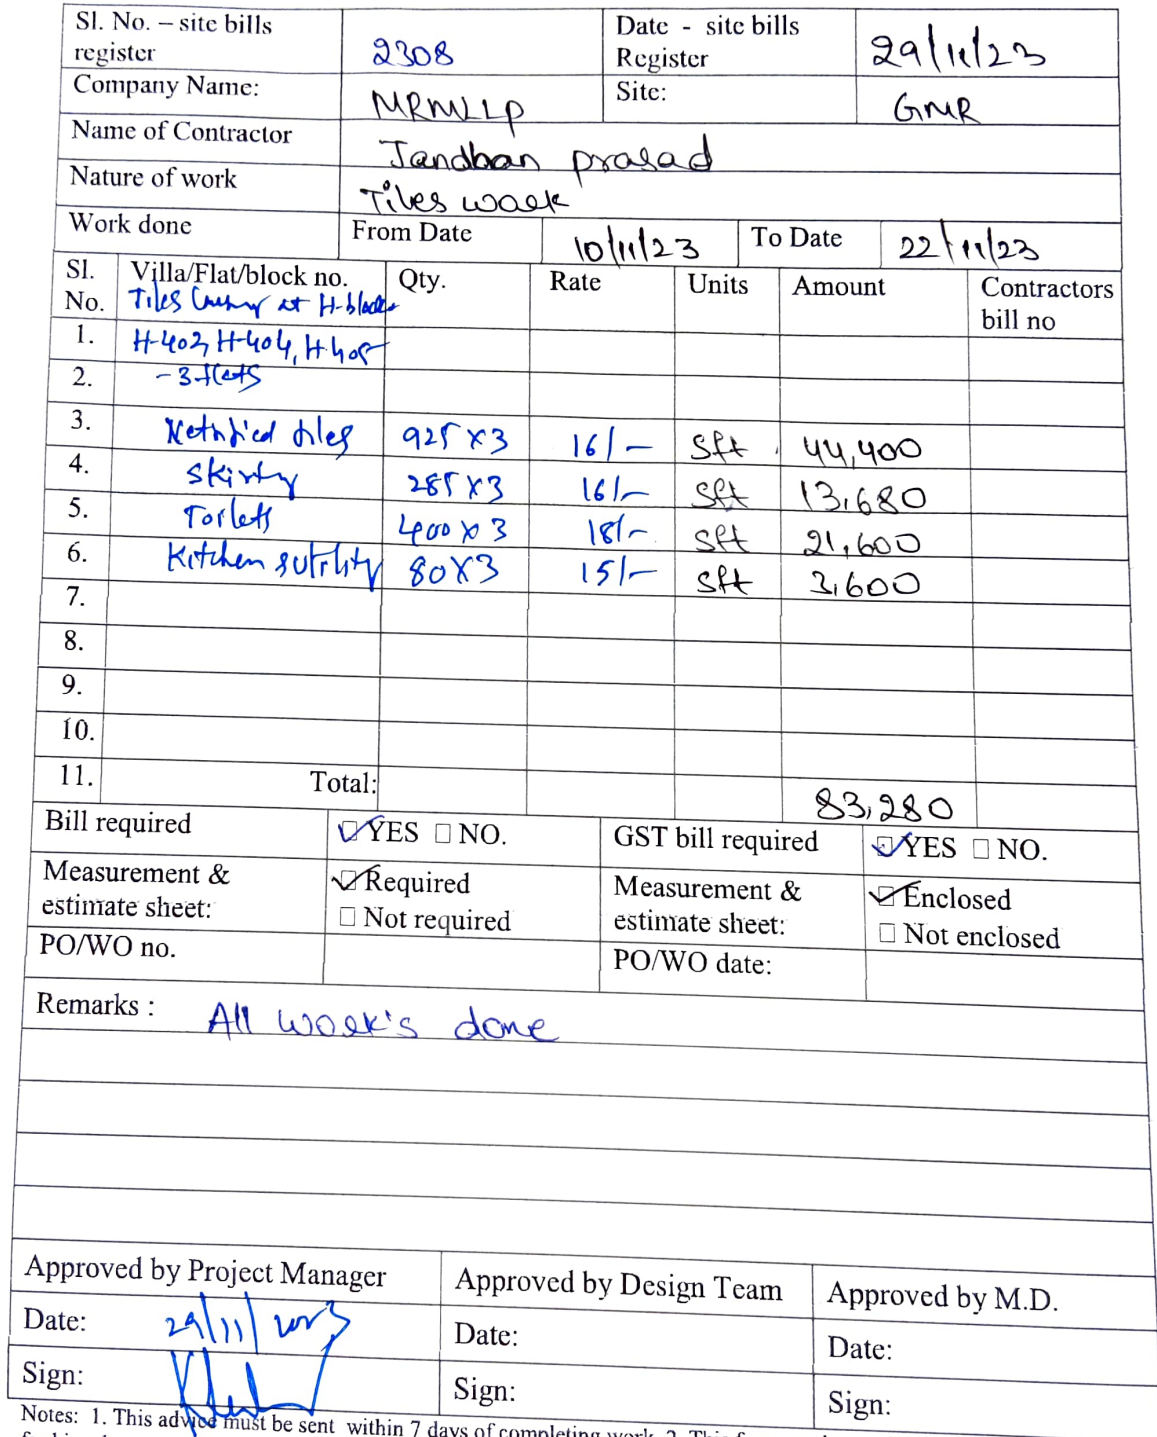 Sl. No. – site bills register 2308 Date - site bills Register 29/11/23
Company Name: MRMLLP Site: GMR
Name of Contractor Jandhan prasad
Nature of work Tiles work
Work done From Date 10/11/23 To Date 22/11/23
Sl. No. Villa/Flat/block no. Qty. Rate Units Amount Contractors bill no
Tiles at H-block
1. H-402, H-404, H-405
2. -3 flats
3. tiles 925 x 3 16/- sft 44,400
4. 285 x 3 16/- sft 13,680
5. Toilets 400 x 3 18/- sft 21,600
6. Kitchen & utility 80 x 3 15/- sft 3,600
7.
8.
9.
10.
11. Total: 83,280
Bill required ☑ YES □ NO. GST bill required ☑ YES □ NO.
Measurement & estimate sheet: ☑ Required □ Not required Measurement & estimate sheet: ☑ Enclosed □ Not enclosed
PO/WO no. PO/WO date:
Remarks : All work's done
Approved by Project Manager Approved by Design Team Approved by M.D.
Date: 29/11/2023 Date: Date:
Sign: Sign: Sign:
Notes: 1. This advice must be sent within 7 days of completing work. 2. This